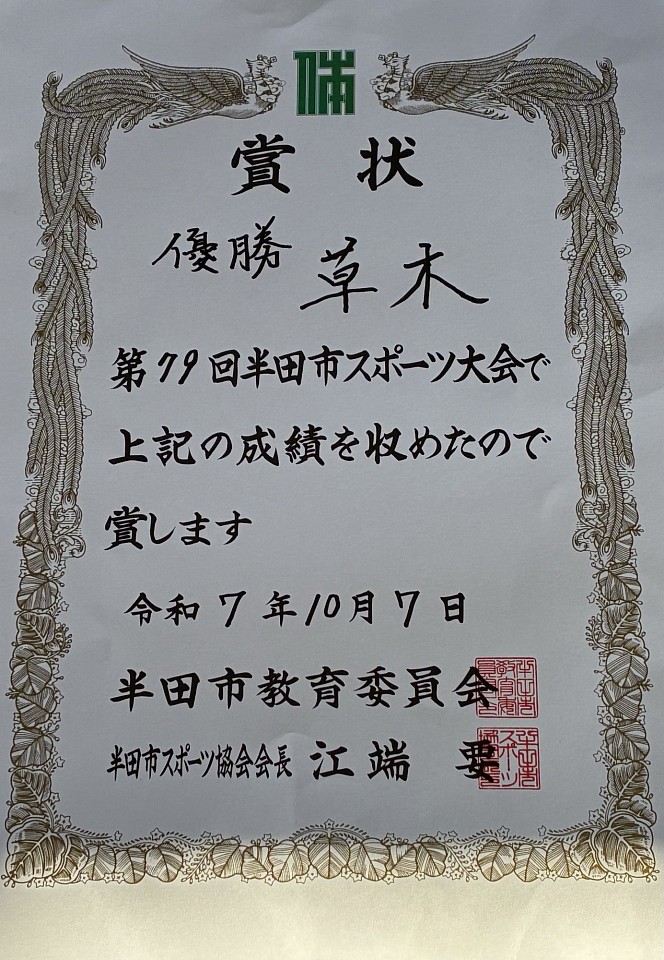 賞状
優勝 草木
第79回半田市スポーツ大会で
上記の成績を収めたので
賞します
令和7年10月7日
半田市教育委員会
半田市スポーツ協会会長 江端 要